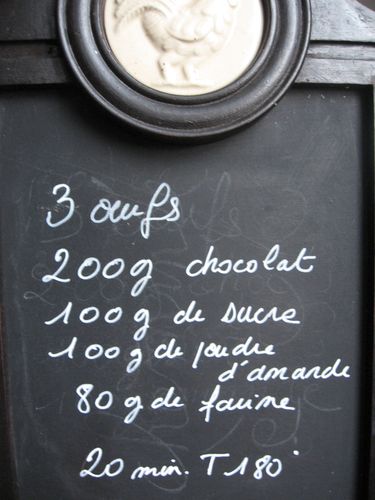 3 œufs
200g chocolat
100g de sucre
100g de poudre
d'amande
80g de farine
20 min. T180°